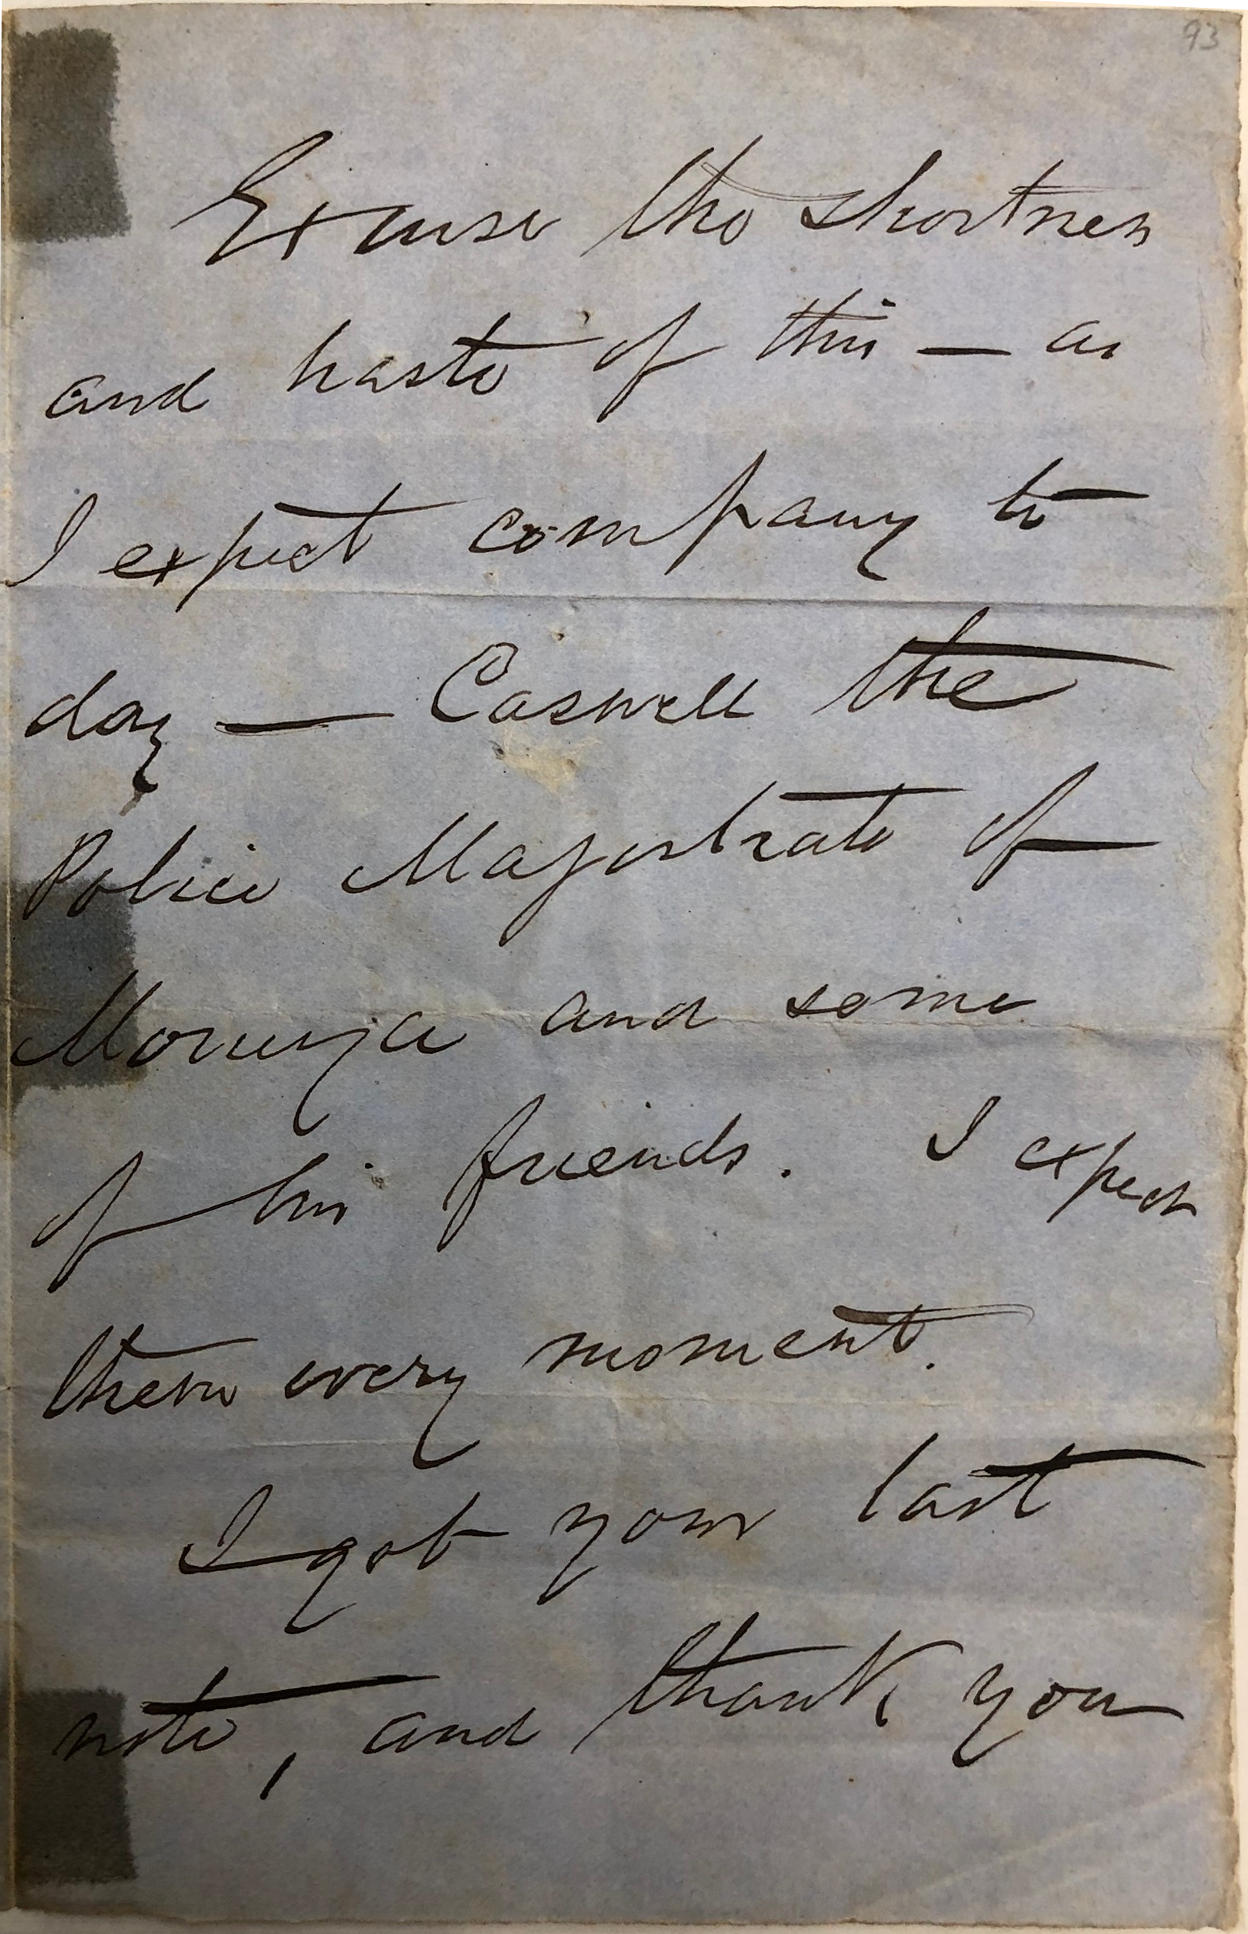 93
Excuse the shortness
and haste of this — as
I expect company to
day — Caswell the
Police Magistrate of
Moruya and some
of his friends. I expect
them every moment.
I got your last
note, and thank you